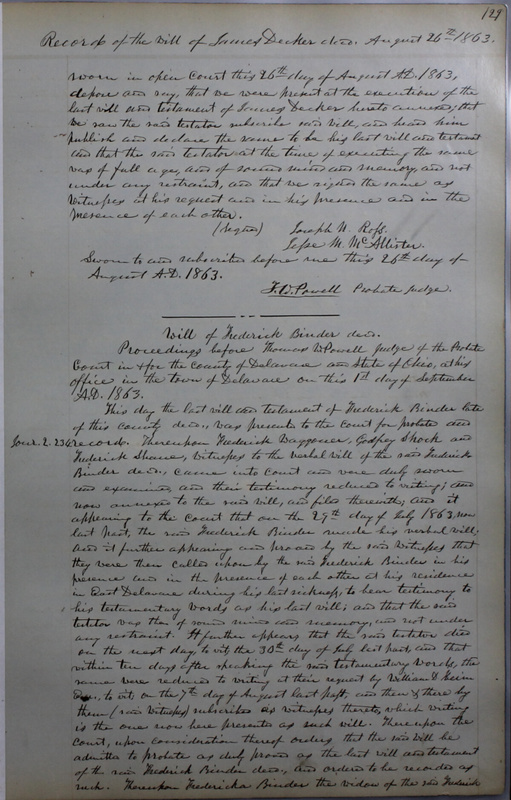 129
Record of the will of James Decker decd. August 26th 1863.
sworn in open Court this 26th day of August A.D. 1863,
depose and say, that we were present at the execution of the
last will and testament of James Decker hereto annexed; that
we saw the said testator subscribe said will, and heard him
publish and declare the same to be his last will and testament
and that the said testator at the time of executing the same
was of full age, and of sound mind and memory, and not
under any restraint, and that we signed the same as
witnesses at his request and in his presence and in the
presence of each other.
(signed) Joseph N. Ross.
Jesse M. McAllister.
Sworn to and subscribed before me this 26th day of
August A.D. 1863.
T.W. Powell Probate Judge.
Will of Frederick Binder decd.
Proceedings before Thomas W Powell Judge of the Probate
Court in & for the County of Delaware and State of Ohio, at his
office in the town of Delaware on this 1st day of September
A.D. 1863.
This day the last will and testament of Frederick Binder late
of this county decd., was presented to the Court for probate and
Jour. 2. 236 record. Thereupon Frederick Waggoner, Godfrey Shock and
Frederick Shane, witnesses to the verbal will of the said Frederick
Binder decd., came into Court and were duly sworn
and examined, and their testimony reduced to writing; and
now annexed to the said will, and filed therewith; and it
appearing to the Court that on the 29th day of July 1863, now
last past, the said Frederick Binder made his verbal will.
And it further appearing and proved by the said witnesses that
they were then called upon by the said Frederick Binder in his
presence and in the presence of each other at his residence
in East Delaware during his last sickness, to bear testimony to
his testamentary words as his last will; and that the said
testator was then of sound mind and memory, and not under
any restraint. It further appears that the said testator died
on the next day, to wit, the 30th day of July last past, and that
within ten days after speaking the said testamentary words, the
same were reduced to writing at their request by William
to wit, on the 7th day of August last past, and then & there by
them (said witnesses) subscribed as witnesses thereto, which writing
is the one now here presented as such will. Thereupon the
Court, upon consideration thereof orders that the said will be
admitted to probate as duly proved as the last will and testament
of the said Frederick Binder decd., and ordered to be recorded as
such. Thereupon Fredericka Binder the widow of the said Frederick